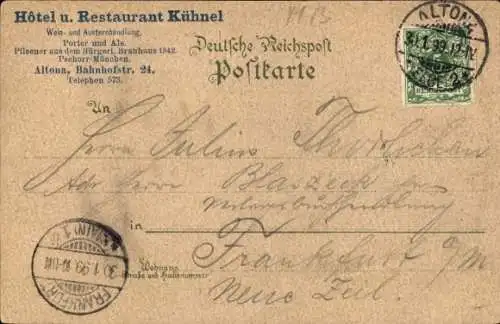 Hôtel u. Restaurant Kühnel
Wein- und Austernhandlung.
Porter und Ale.
Pilsener aus dem Bürgerl. Brauhaus 1842.
Pschorr-München.
Altona, Bahnhofstr. 24.
Telephon 573.
Deutsche Reichspost
Postkarte
ALTONA
31.1.99
An
Herrn Julius
Adr Herrn
in Frankfurt a/M
Wohnung
Straße und Hausnummer
Neue Zeil.
FRANKFURT
(MAIN) 1
1.99